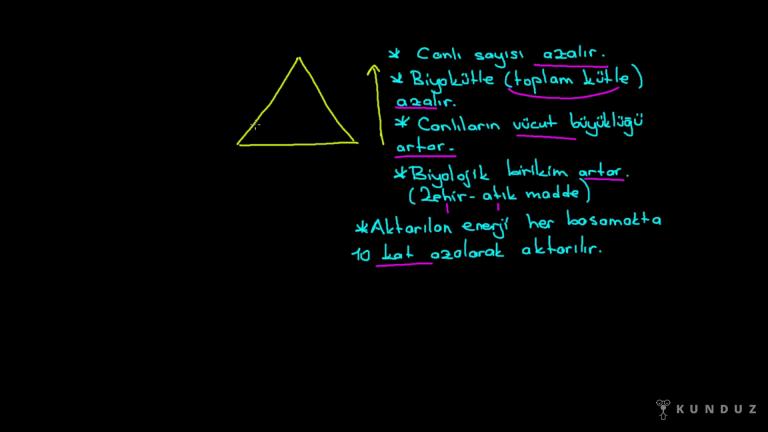 * Canlı sayısı azalır.
* Biyokütle (toplam kütle)
azalır.
* Canlıların vücut büyüklüğü
artar.
* Biyolojik birikim artar.
(Zehir - atık madde)
* Aktarılan enerji her basamakta
10 kat azalarak aktarılır.
KUNDUZ